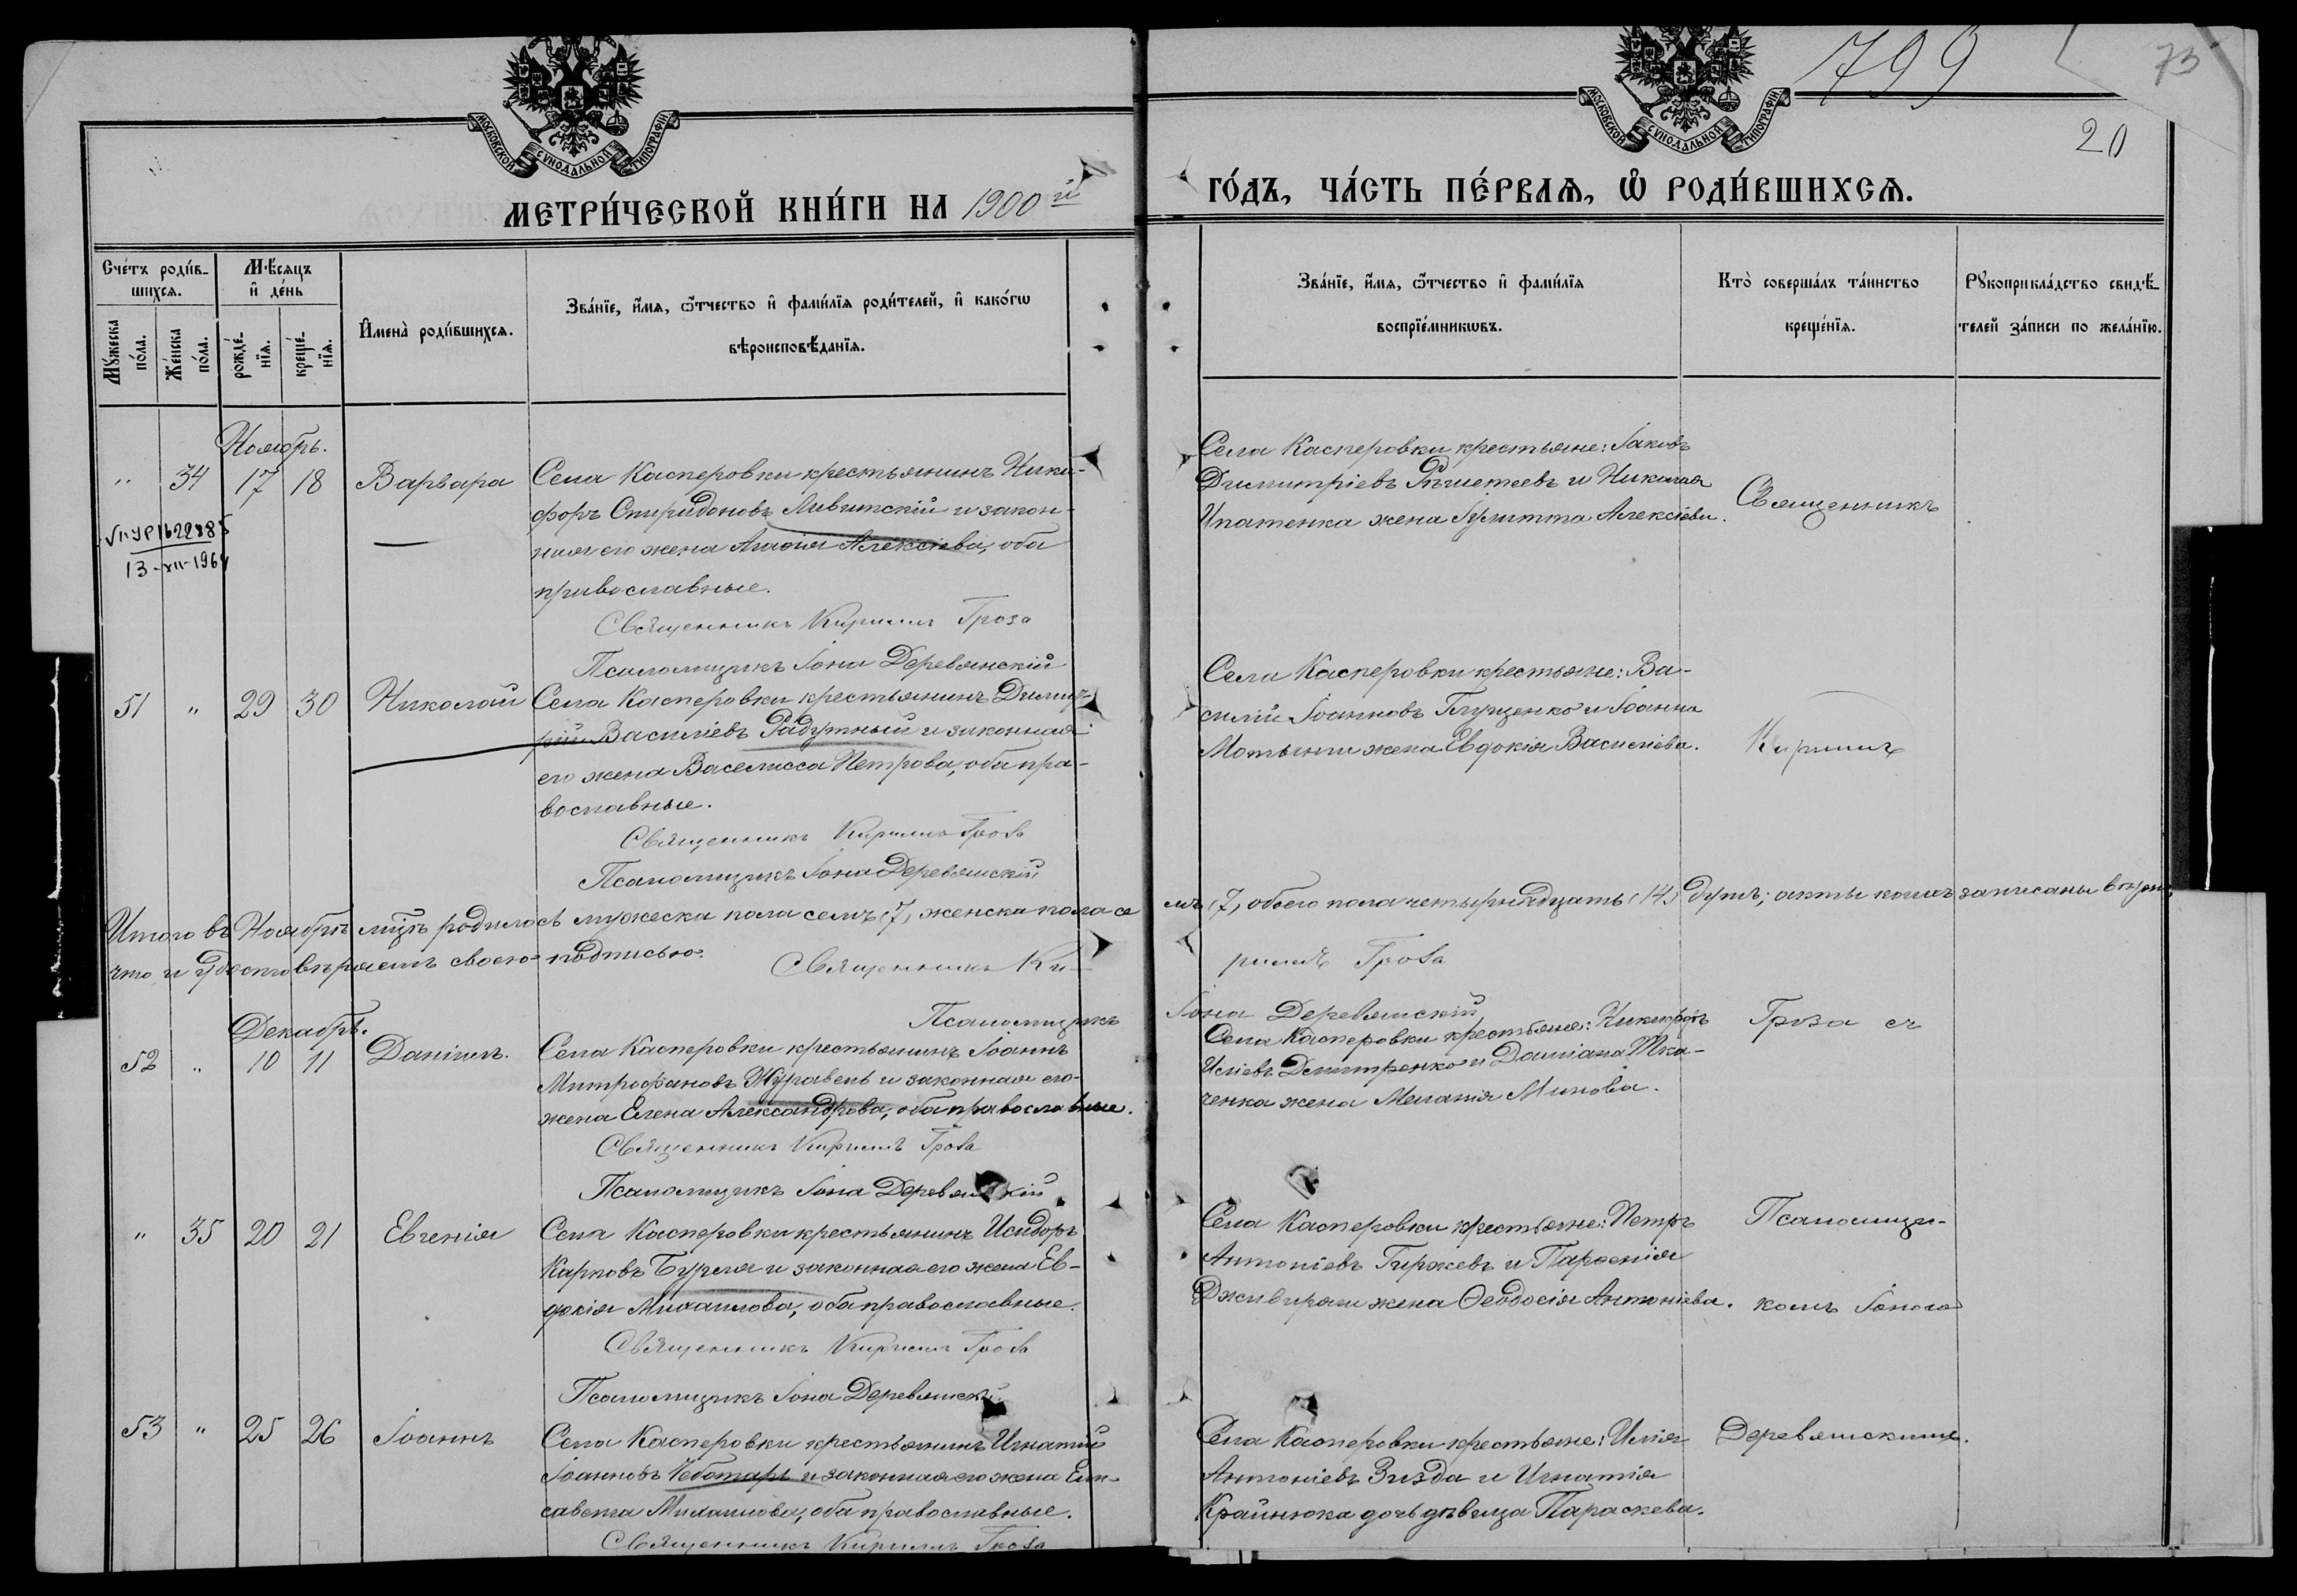 799
73
20
МОСКОВСКОЙ СѴНОДАЛЬНОЙ ТИПОГРАФІИ
МОСКОВСКОЙ СѴНОДАЛЬНОЙ ТИПОГРАФІИ
МЕТРИ́ЧЕСКОЙ КНИ́ГИ НА 1900й
ГО́ДЪ, ЧА́СТЬ ПЕ́РВАѦ, Ѡ҆ РОДИ́ВШИХСѦ.
Сче́тъ роди́в-
шихсѧ.
Мѣ́сѧцъ
и҆ де́нь
Мꙋ́жеска
по́ла.
Же́нска
по́ла.
рожде́-
нїѧ.
креще́-
нїѧ.
И҆мена̀ роди́вшихсѧ.
Зва́нїе, и҆́мѧ, ѻ҆́тчество и҆ фами́лїѧ роди́телей, и҆ како́гѡ
вѣроисповѣ́данїѧ.
Зва́нїе, и҆́мѧ, ѻ҆́тчество и҆ фами́лїѧ
воспрїе́мникѡвъ.
Кто̀ соверша́лъ та́инство
креще́нїѧ.
Рꙋкоприкла́дство свидѣ́-
телей за́писи по жела́нїю.
Ноябрь.
" 34 17 18 Варвара
Села Касперовки крестьянинъ Ники-
форъ Спиридоновъ Ливитскій и закон-
ная его жена Алексіева, оба
православные.
Священникъ Кириллъ Гроза
Псаломщикъ Іона Деревянскій
13-XII-1964
Села Касперовки крестьяне: Іаковъ
Димитріевъ и Николая
Ипатенка жена Іулитта Алексіева.
Священникъ
51 " 29 30 Николай
Села Касперовки крестьянинъ Димит-
рій Василіевъ Радутный и законная
его жена Васелисса Петрова, оба пра-
вославные.
Священникъ Кириллъ Гроза
Псаломщикъ Іона Деревянскій
Села Касперовки крестьяне: Ва-
силій Іоанновъ Глущенко и Іоанна
жена Евдокія Василіева.
Кириллъ
Итого въ Ноябрѣ мцѣ родилось мужеска пола семь (7), женска пола се
мь (7), обоего пола четырнадцать (14) душъ; акты коихъ записаны вѣрно,
что и удостовѣряемъ своею подписью.
Священникъ Ки-
риллъ Гроза
Псаломщикъ
Іона Деревянскій
Декабрь.
52 " 10 11 Даніилъ.
Села Касперовки крестьянинъ Іоаннъ
Митрофановъ Журавель и законная его
жена Елена Александрова, оба православные.
Священникъ Кириллъ Гроза
Псаломщикъ Іона Деревянскій
Села Касперовки крестьяне: Никифоръ
Иліевъ Демитренко и Даміана Тка-
ченка жена Меланія Минова.
Гроза съ
" 35 20 21 Евгенія
Села Касперовки крестьянинъ Исидоръ
Карповъ Буреля и законная его жена Ев-
докія Михаилова, оба православные.
Священникъ Кириллъ Гроза
Псаломщикъ Іона Деревянскій
Села Касперовки крестьяне: Петръ
Антоніевъ Гиржевъ и Парѳенія
жена Ѳеодосія Антоніева.
Псаломщи-
комъ Іоною
53 " 25 26 Іоаннъ
Села Касперовки крестьянинъ Игнатій
Іоанновъ Чеботарь и законная его жена Ели-
савета Михаилова, оба православные.
Священникъ Кириллъ Гроза
Села Касперовки крестьяне: Илія
Антоніевъ Звѣзда и Игнатія
Крайнюка дочь дѣвица Параскева.
Деревянскимъ.